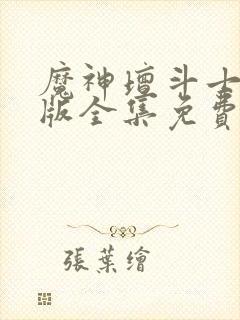 魔神壇斗士
版全集免費
張葉繪